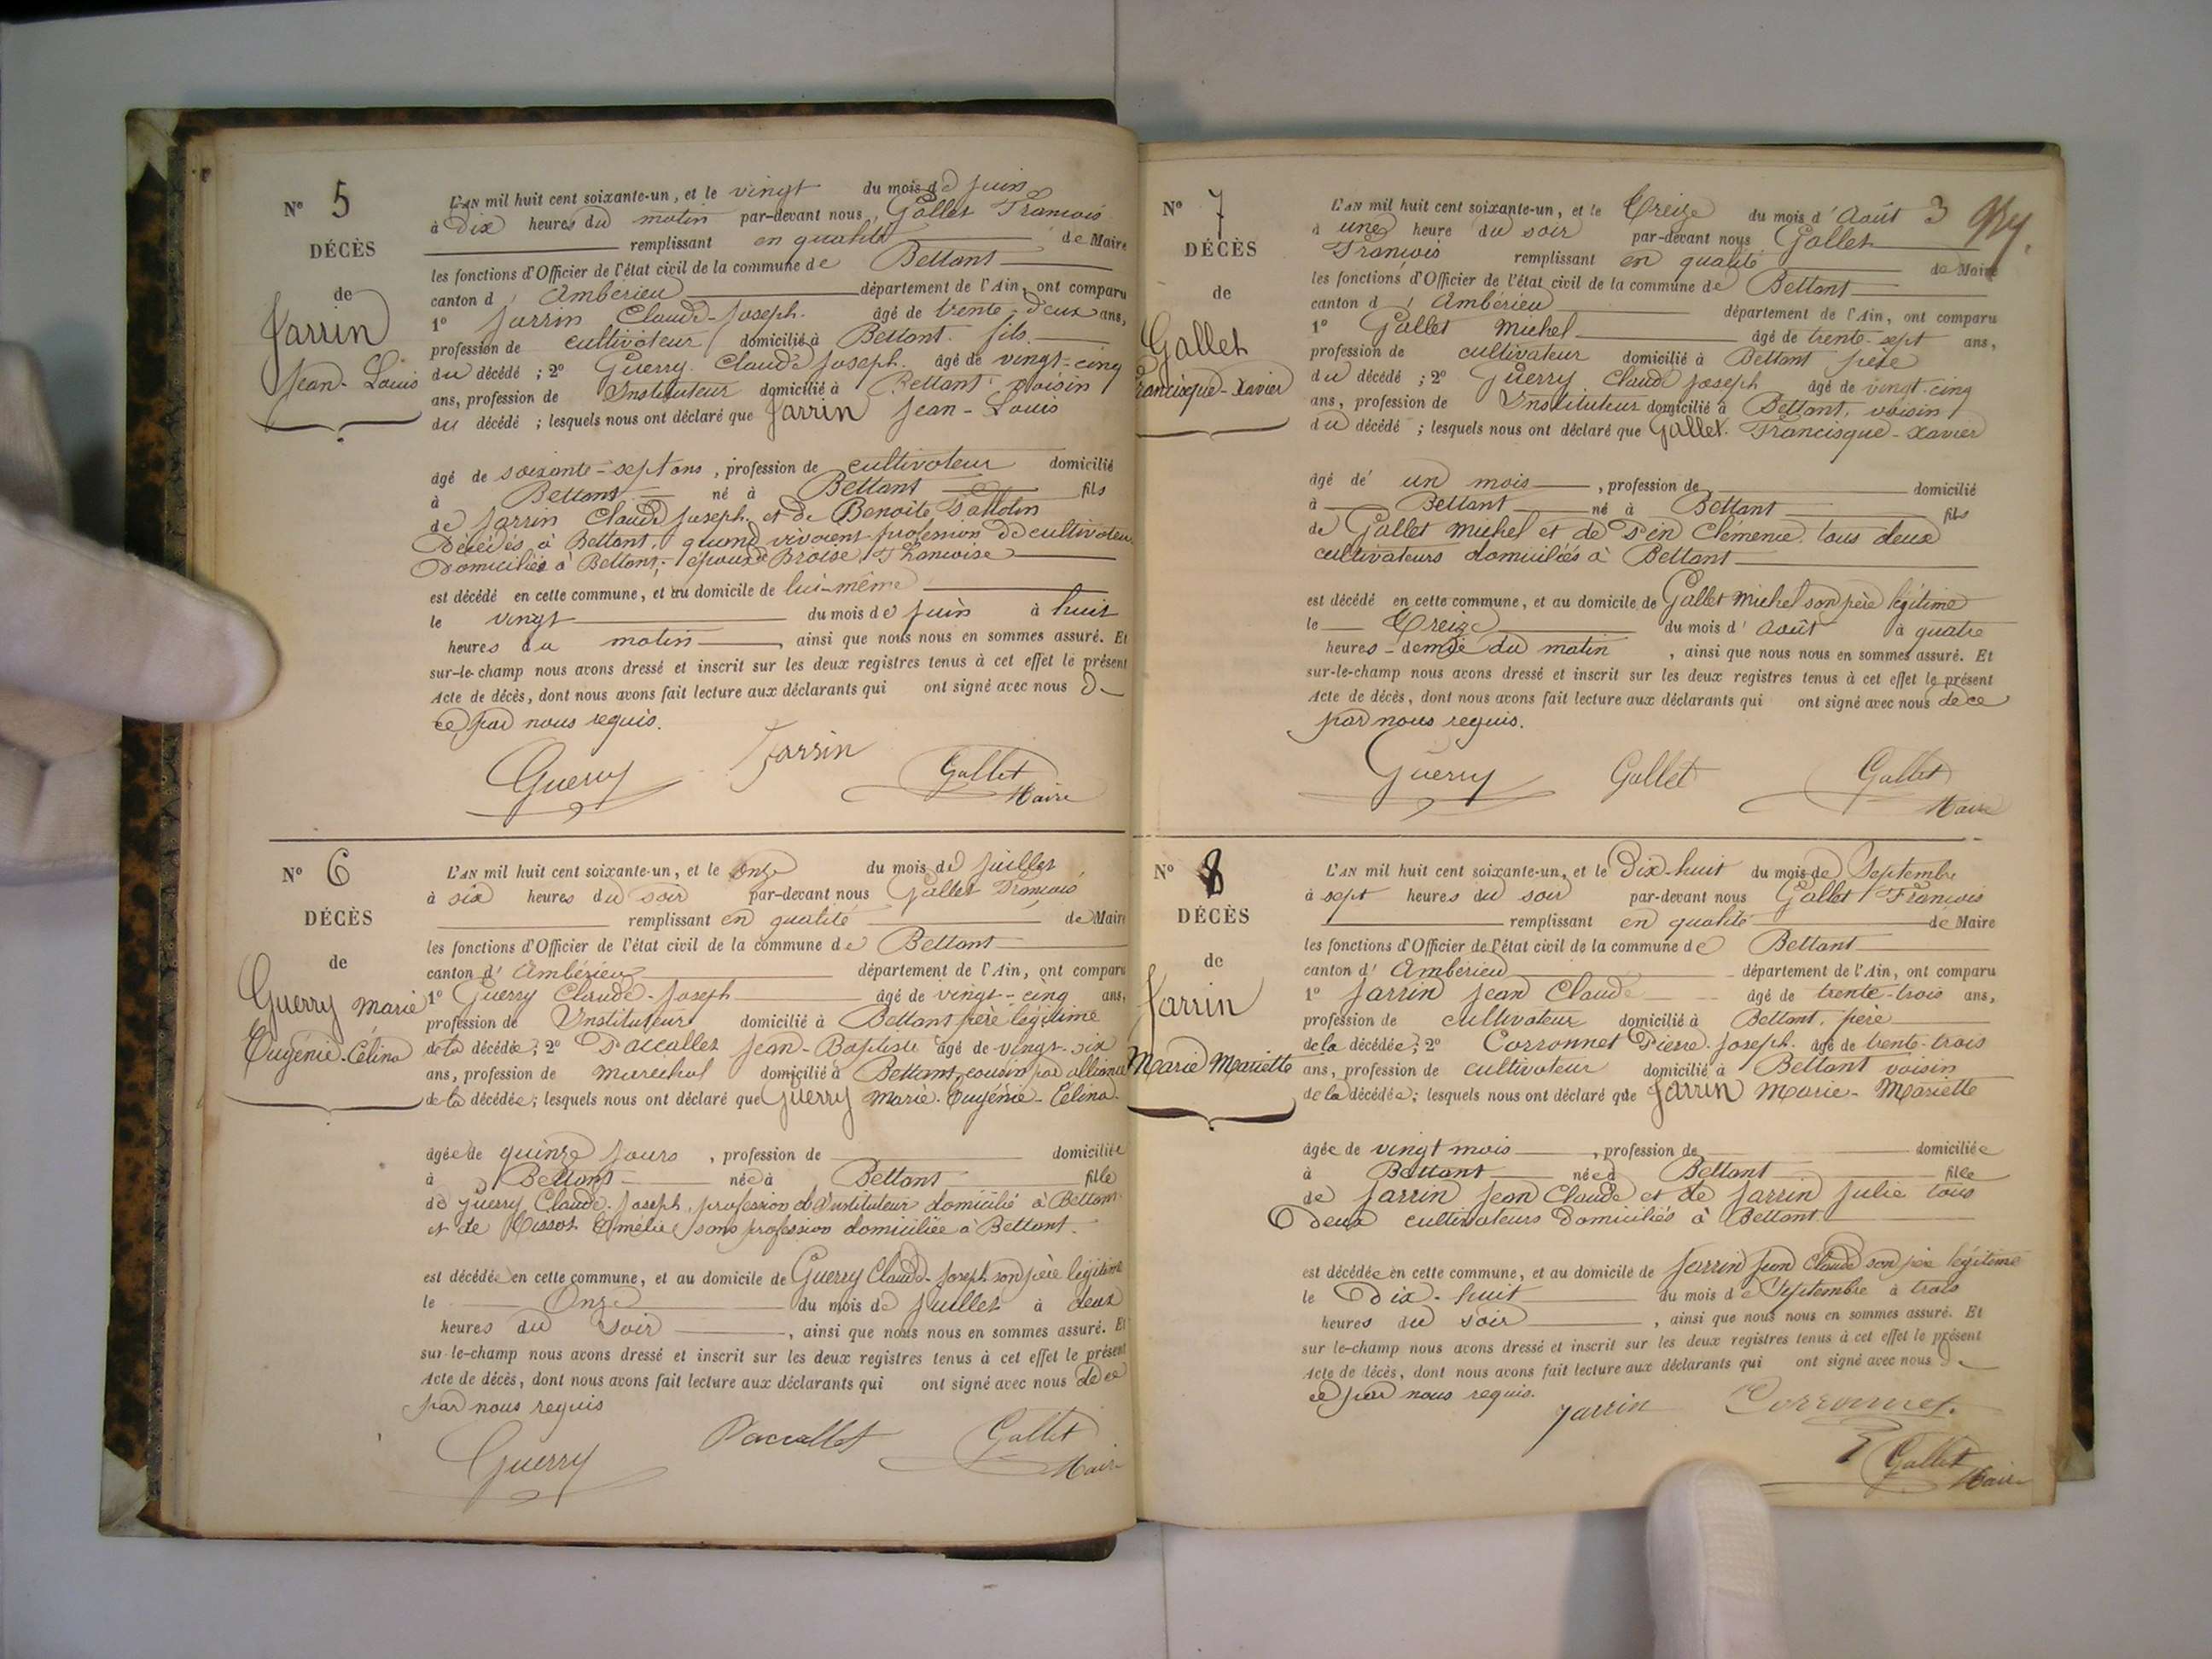 N° 5
DÉCÈS
de
Jarrin
Jean-Louis
L'AN mil huit cent soixante-un, et le vingt du mois de juin
à Dix heures du matin par-devant nous, Gallet François
remplissant en qualité de Maire
les fonctions d'Officier de l'état civil de la commune de Bettant
canton d'Ambérieu département de l'Ain, ont comparu
1° Jarrin Claude-Joseph. âgé de trente-deux ans,
profession de cultivateur domicilié à Bettant. fils.
du décédé ; 2° Guerry Claude Joseph. âgé de vingt-cinq
ans, profession de Instituteur domicilié à Bettant voisin
du décédé ; lesquels nous ont déclaré que Jarrin Jean-Louis
âgé de soixante-sept ans, profession de cultivateur domicilié
à Bettant né à Bettant fils
de Jarrin Claude Joseph et de Benoite
Décédés à Bettant, quand vivaient profession de cultivateurs
Domiciliés à Bettant; époux de Broise Françoise
est décédé en cette commune, et au domicile de lui-même
le vingt du mois de juin à huit
heures du matin, ainsi que nous nous en sommes assuré. Et
sur-le-champ nous avons dressé et inscrit sur les deux registres tenus à cet effet le présent
Acte de décès, dont nous avons fait lecture aux déclarants qui ont signé avec nous de
ce par nous requis.
Guerry Jarrin Gallet
Maire
N° 6
DÉCÈS
de
Guerry Marie
Eugénie-Célina
L'AN mil huit cent soixante-un, et le onze du mois de juillet
à six heures du soir par-devant nous Gallet François
remplissant en qualité de Maire
les fonctions d'Officier de l'état civil de la commune de Bettant
canton d'Ambérieu département de l'Ain, ont comparu
1° Guerry Claude-Joseph âgé de vingt-cinq ans,
profession de Instituteur domicilié à Bettant père légitime
de la décédée; 2° Paccallet Jean-Baptiste âgé de vingt-six
ans, profession de maréchal domicilié à Bettant, cousin par alliance
de la décédée; lesquels nous ont déclaré que Guerry Marie-Eugénie-Célina.
âgée de quinze jours, profession de domiciliée
à Bettant née à Bettant fille
de Guerry Claude-Joseph, profession d'Instituteur domicilié à Bettant
et de Tissot Emélie sans profession domiciliée à Bettant.
est décédée en cette commune, et au domicile de Guerry Claude-Joseph son père légitime
le Onze du mois de juillet à deux
heures du soir, ainsi que nous nous en sommes assuré. Et
sur-le-champ nous avons dressé et inscrit sur les deux registres tenus à cet effet le présent
Acte de décès, dont nous avons fait lecture aux déclarants qui ont signé avec nous de ce
par nous requis
Guerry Paccallet Gallet
Maire
N° 7
DÉCÈS
de
Gallet
Francisque-Xavier
L'AN mil huit cent soixante-un, et le Treize du mois d'Août 3
à une heure du soir par-devant nous Gallet
François remplissant en qualité de Maire
les fonctions d'Officier de l'état civil de la commune de Bettant
canton d'Ambérieu département de l'Ain, ont comparu
1° Gallet Michel âgé de trente-sept ans,
profession de cultivateur domicilié à Bettant père
du décédé ; 2° Guerry Claude Joseph âgé de vingt-cinq
ans, profession de Instituteur domicilié à Bettant, voisin
du décédé ; lesquels nous ont déclaré que Gallet. Francisque-Xavier
âgé de un mois, profession de domicilié
à Bettant né à Bettant fils
de Gallet Michel et de Pin Clémence tous deux
cultivateurs domiciliés à Bettant
est décédé en cette commune, et au domicile de Gallet Michel son père légitime
le Treize du mois d'Août à quatre
heures-demie du matin, ainsi que nous nous en sommes assuré. Et
sur-le-champ nous avons dressé et inscrit sur les deux registres tenus à cet effet le présent
Acte de décès, dont nous avons fait lecture aux déclarants qui ont signé avec nous de ce
par nous requis.
Guerry Gallet Gallet
Maire
N° 8
DÉCÈS
de
Jarrin
Marie Mariette
L'AN mil huit cent soixante-un, et le Dix-huit du mois de Septembre
à sept heures du soir par-devant nous Gallet François
remplissant en qualité de Maire
les fonctions d'Officier de l'état civil de la commune de Bettant
canton d'Ambérieu département de l'Ain, ont comparu
1° Jarrin Jean Claude âgé de trente-trois ans,
profession de cultivateur domicilié à Bettant, père
de la décédée; 2° Corronnet Pierre-Joseph. âgé de trente-trois
ans, profession de cultivateur domicilié à Bettant voisin
de la décédée; lesquels nous ont déclaré que Jarrin Marie-Mariette
âgée de vingt mois, profession de domiciliée
à Bettant née à Bettant fille
de Jarrin Jean Claude et de Jarrin Julie tous
Deux cultivateurs Domiciliés à Bettant
est décédée en cette commune, et au domicile de Jarrin Jean Claude son père légitime
le Dix-huit du mois de Septembre à trois
heures du soir, ainsi que nous nous en sommes assuré. Et
sur-le-champ nous avons dressé et inscrit sur les deux registres tenus à cet effet le présent
Acte de décès, dont nous avons fait lecture aux déclarants qui ont signé avec nous de
ce par nous requis.
Jarrin Corronnet.
Gallet
Maire